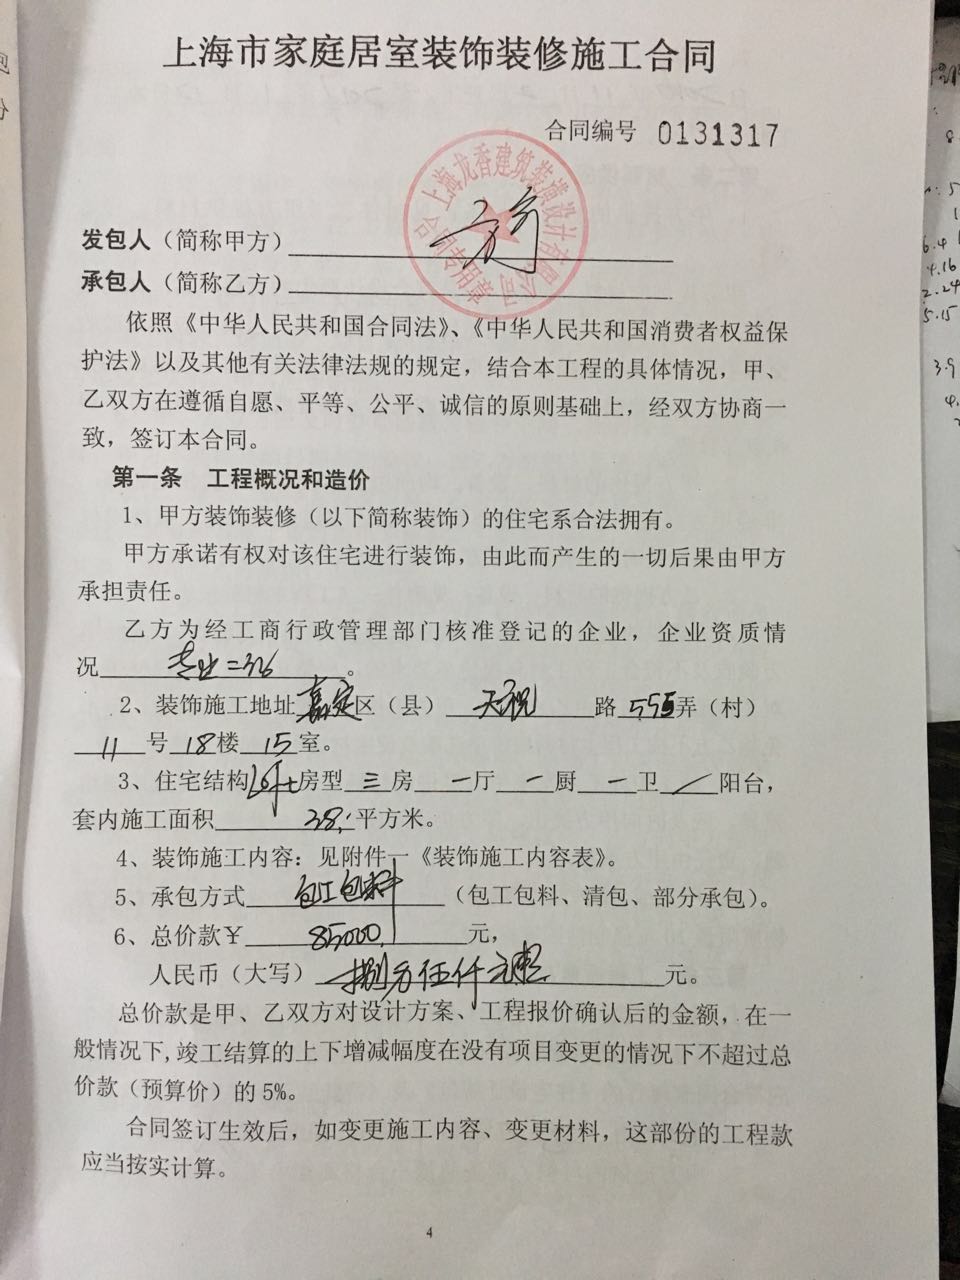 上海市家庭居室装饰装修施工合同
合同编号 0131317
上海龙香建筑装潢设计有限公司
合同专用章
发包人（简称甲方）
承包人（简称乙方）
依照《中华人民共和国合同法》、《中华人民共和国消费者权益保
护法》以及其他有关法律法规的规定，结合本工程的具体情况，甲、
乙双方在遵循自愿、平等、公平、诚信的原则基础上，经双方协商一
致，签订本合同。
第一条 工程概况和造价
1、甲方装饰装修（以下简称装饰）的住宅系合法拥有。
甲方承诺有权对该住宅进行装饰，由此而产生的一切后果由甲方
承担责任。
乙方为经工商行政管理部门核准登记的企业，企业资质情
况 专业二级。
2、装饰施工地址 嘉定 区（县） 天祝 路 595 弄（村）
11 号 18 楼 15 室。
3、住宅结构 房型 三 房 一 厅 一 厨 一 卫 / 阳台，
套内施工面积 38 平方米。
4、装饰施工内容：见附件一《装饰施工内容表》。
5、承包方式 包工包料 （包工包料、清包、部分承包）。
6、总价款￥ 85000 元，
人民币（大写） 捌万伍仟元整 元。
总价款是甲、乙双方对设计方案、工程报价确认后的金额，在一
般情况下,竣工结算的上下增减幅度在没有项目变更的情况下不超过总
价款（预算价）的5%。
合同签订生效后，如变更施工内容、变更材料，这部份的工程款
应当按实计算。
4